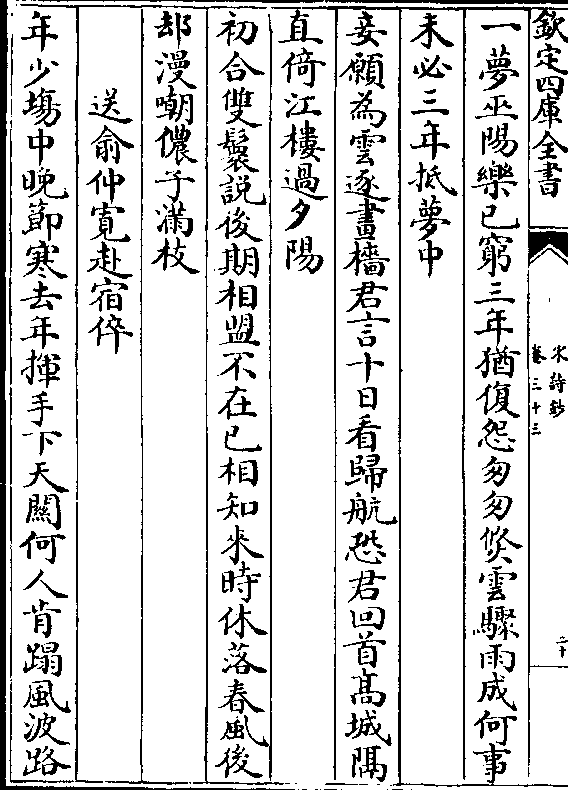 欽定四庫全書
宋詩鈔
卷三十三
二十
一夢巫陽樂已窮三年猶復怨匆匆倐雲驟雨成何事
未必三年抵夢中
妾願為雲逐畫檣君言十日看歸航恐君回首髙城隅
直倚江樓過夕陽
初合雙鬟説後期相盟不在已相知來時休落春風後
却漫嘲儂子滿枝
送俞仲寛赴宿倅
年少塲中晚節寒去年揮手下天闗何人肯蹋風波路